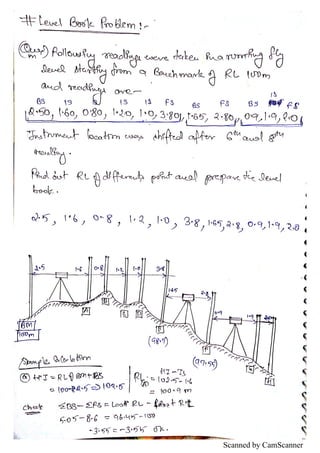 # Level Book Problem:-
Ques) Following readings were taken in a running fly
level starting from a Benchmark of RL 100m
and readings are -
BS IS IS IS FS BS FS BS IS FS
2.50, 1.60, 0.80, 1.20, 1.0, 3.80, 1.65, 2.80, 0.9, 1.9, 2.0
Instrument location was shifted after 6th and 8th
reading.
Find out RL of different point and prepare the level
book.
2.5, 1.6, 0.8, 1.2, 1.0, 3.8, 1.65, 2.8, 0.9, 1.9, 2.0
2.5 1.6 0.8 1.2 1.0 3.8
1.65 2.8
1.9 2.0
BM
100m
A
(98.7)
Sample Calculation
HI = RL of BM + BS
= 102.5
HI - IS
= 102.5 - 1.6
= 100.9 m
Check ΣBS - ΣFS = Last RL - First RL
5.05 - 8.6 = 96.45 - 100
-3.55 = -3.55 ok.
Scanned by CamScanner